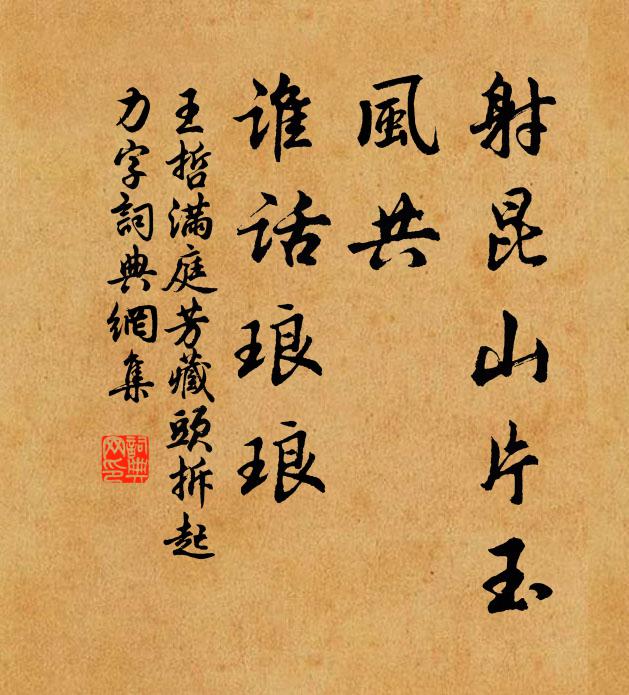 射昆山片玉
風共
誰话琅琅
王哲滿庭芳藏頭拆起
力字詞典網集
詞典
网印